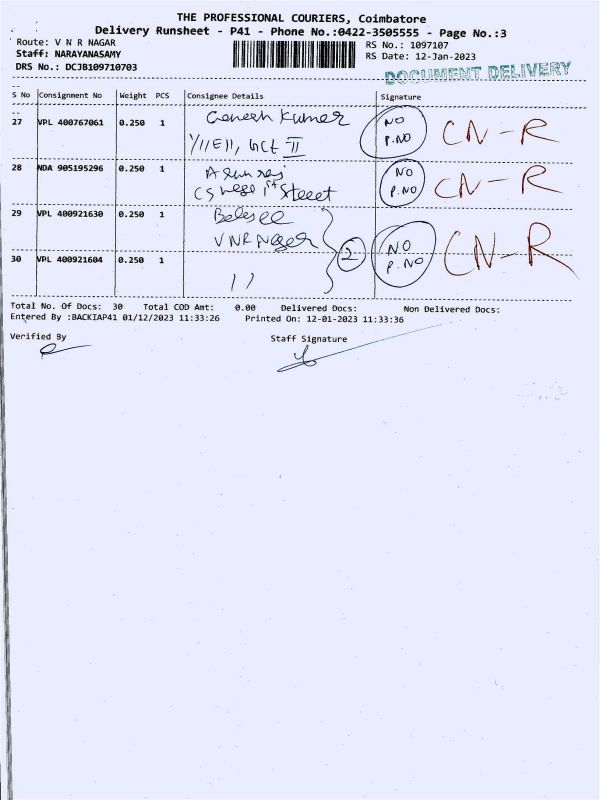 THE PROFESSIONAL COURIERS, Coimbatore
Delivery Runsheet - P41 - Phone No.:0422-3505555 - Page No.:3
Route: V N R NAGAR
Staff: NARAYANASAMY
DRS No.: DCJB109710703
RS No.: 1097107
RS Date: 12-Jan-2023
DOCUMENT DELIVERY
S No Consignment No Weight PCS Consignee Details Signature
27 VPL 400767061 0.250 1 Ganesh Kumar NO P.NO CN-R
28 NDA 905195296 0.250 1 1st Street NO P.NO CN-R
29 VPL 400921630 0.250 1 VNR Nager 2 NO P.NO CN-R
30 VPL 400921604 0.250 1 ))
Total No. Of Docs: 30 Total COD Amt: 0.00 Delivered Docs: Non Delivered Docs:
Entered By :BACKIAP41 01/12/2023 11:33:26 Printed On: 12-01-2023 11:33:36
Verified By Staff Signature